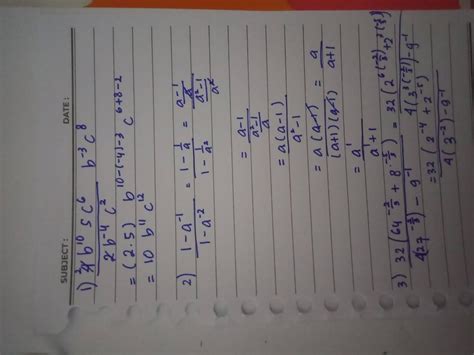 SUBJECT: DATE:
1) 2b^10 5c^6 b^-3 c^8 / 2b^-4 c^2
= (2.5) b^10-(-4)-3 c^6+8-2
= 10 b^11 c^12
2) 1-a^-1 / 1-a^-2 = 1-1/a / 1-1/a^2 = a-1/a / a^2-1/a^2
= a-1 / a^2-1/a
= a(a-1) / a^2-1
= a(a-1) / (a+1)(a-1) = a / a+1
= a^1 / a^1+1
3) 32(64^-2/3 + 8^-5/3) / 427^-2/3) - 9^-1 = 32(2^6(-2/3) + 2^3(-5/3)) / 4(3^3(-2/3)) - 9^-1
= 32(2^-4 + 2^-5) / 4(3^-2) - 9^-1